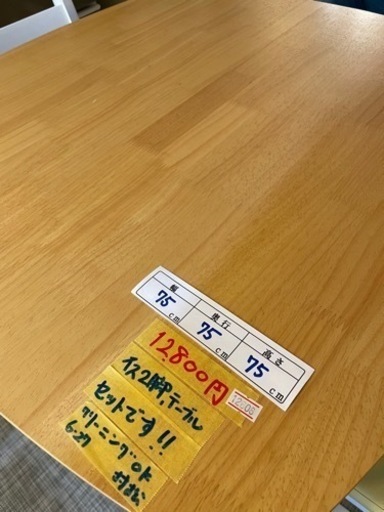 幅 奥行 高さ
75cm 75cm 75cm
12800円
イス2脚テーブル
セットです!!
クリーニングOK
6-27